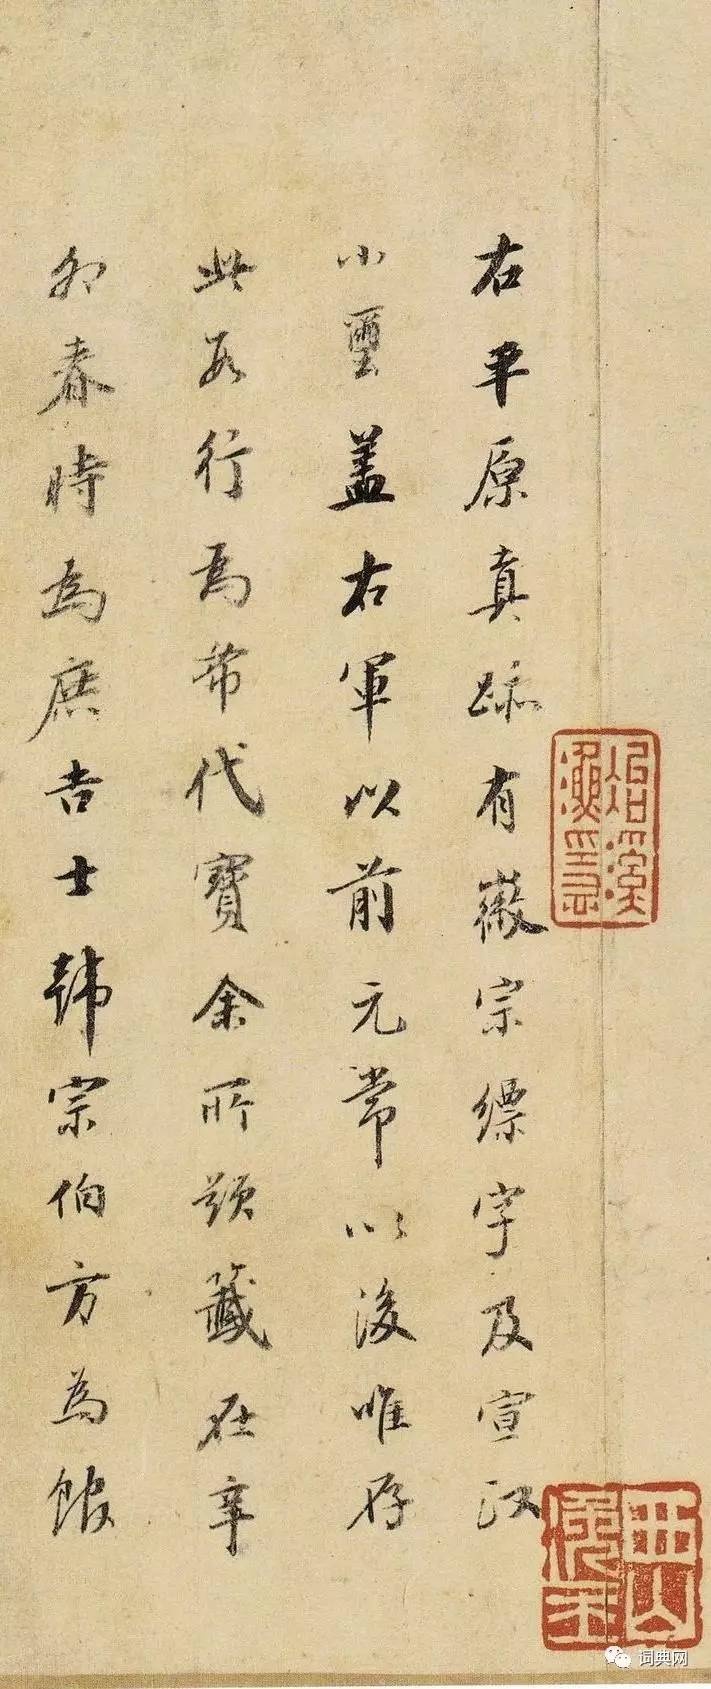 右平原真跡有徽宗縹字及宣江
小璽蓋右軍以前元常以後唯存
此數行爲希代寶余所題籤在辛
卯春時為庶吉士韓宗伯方為館
词典网